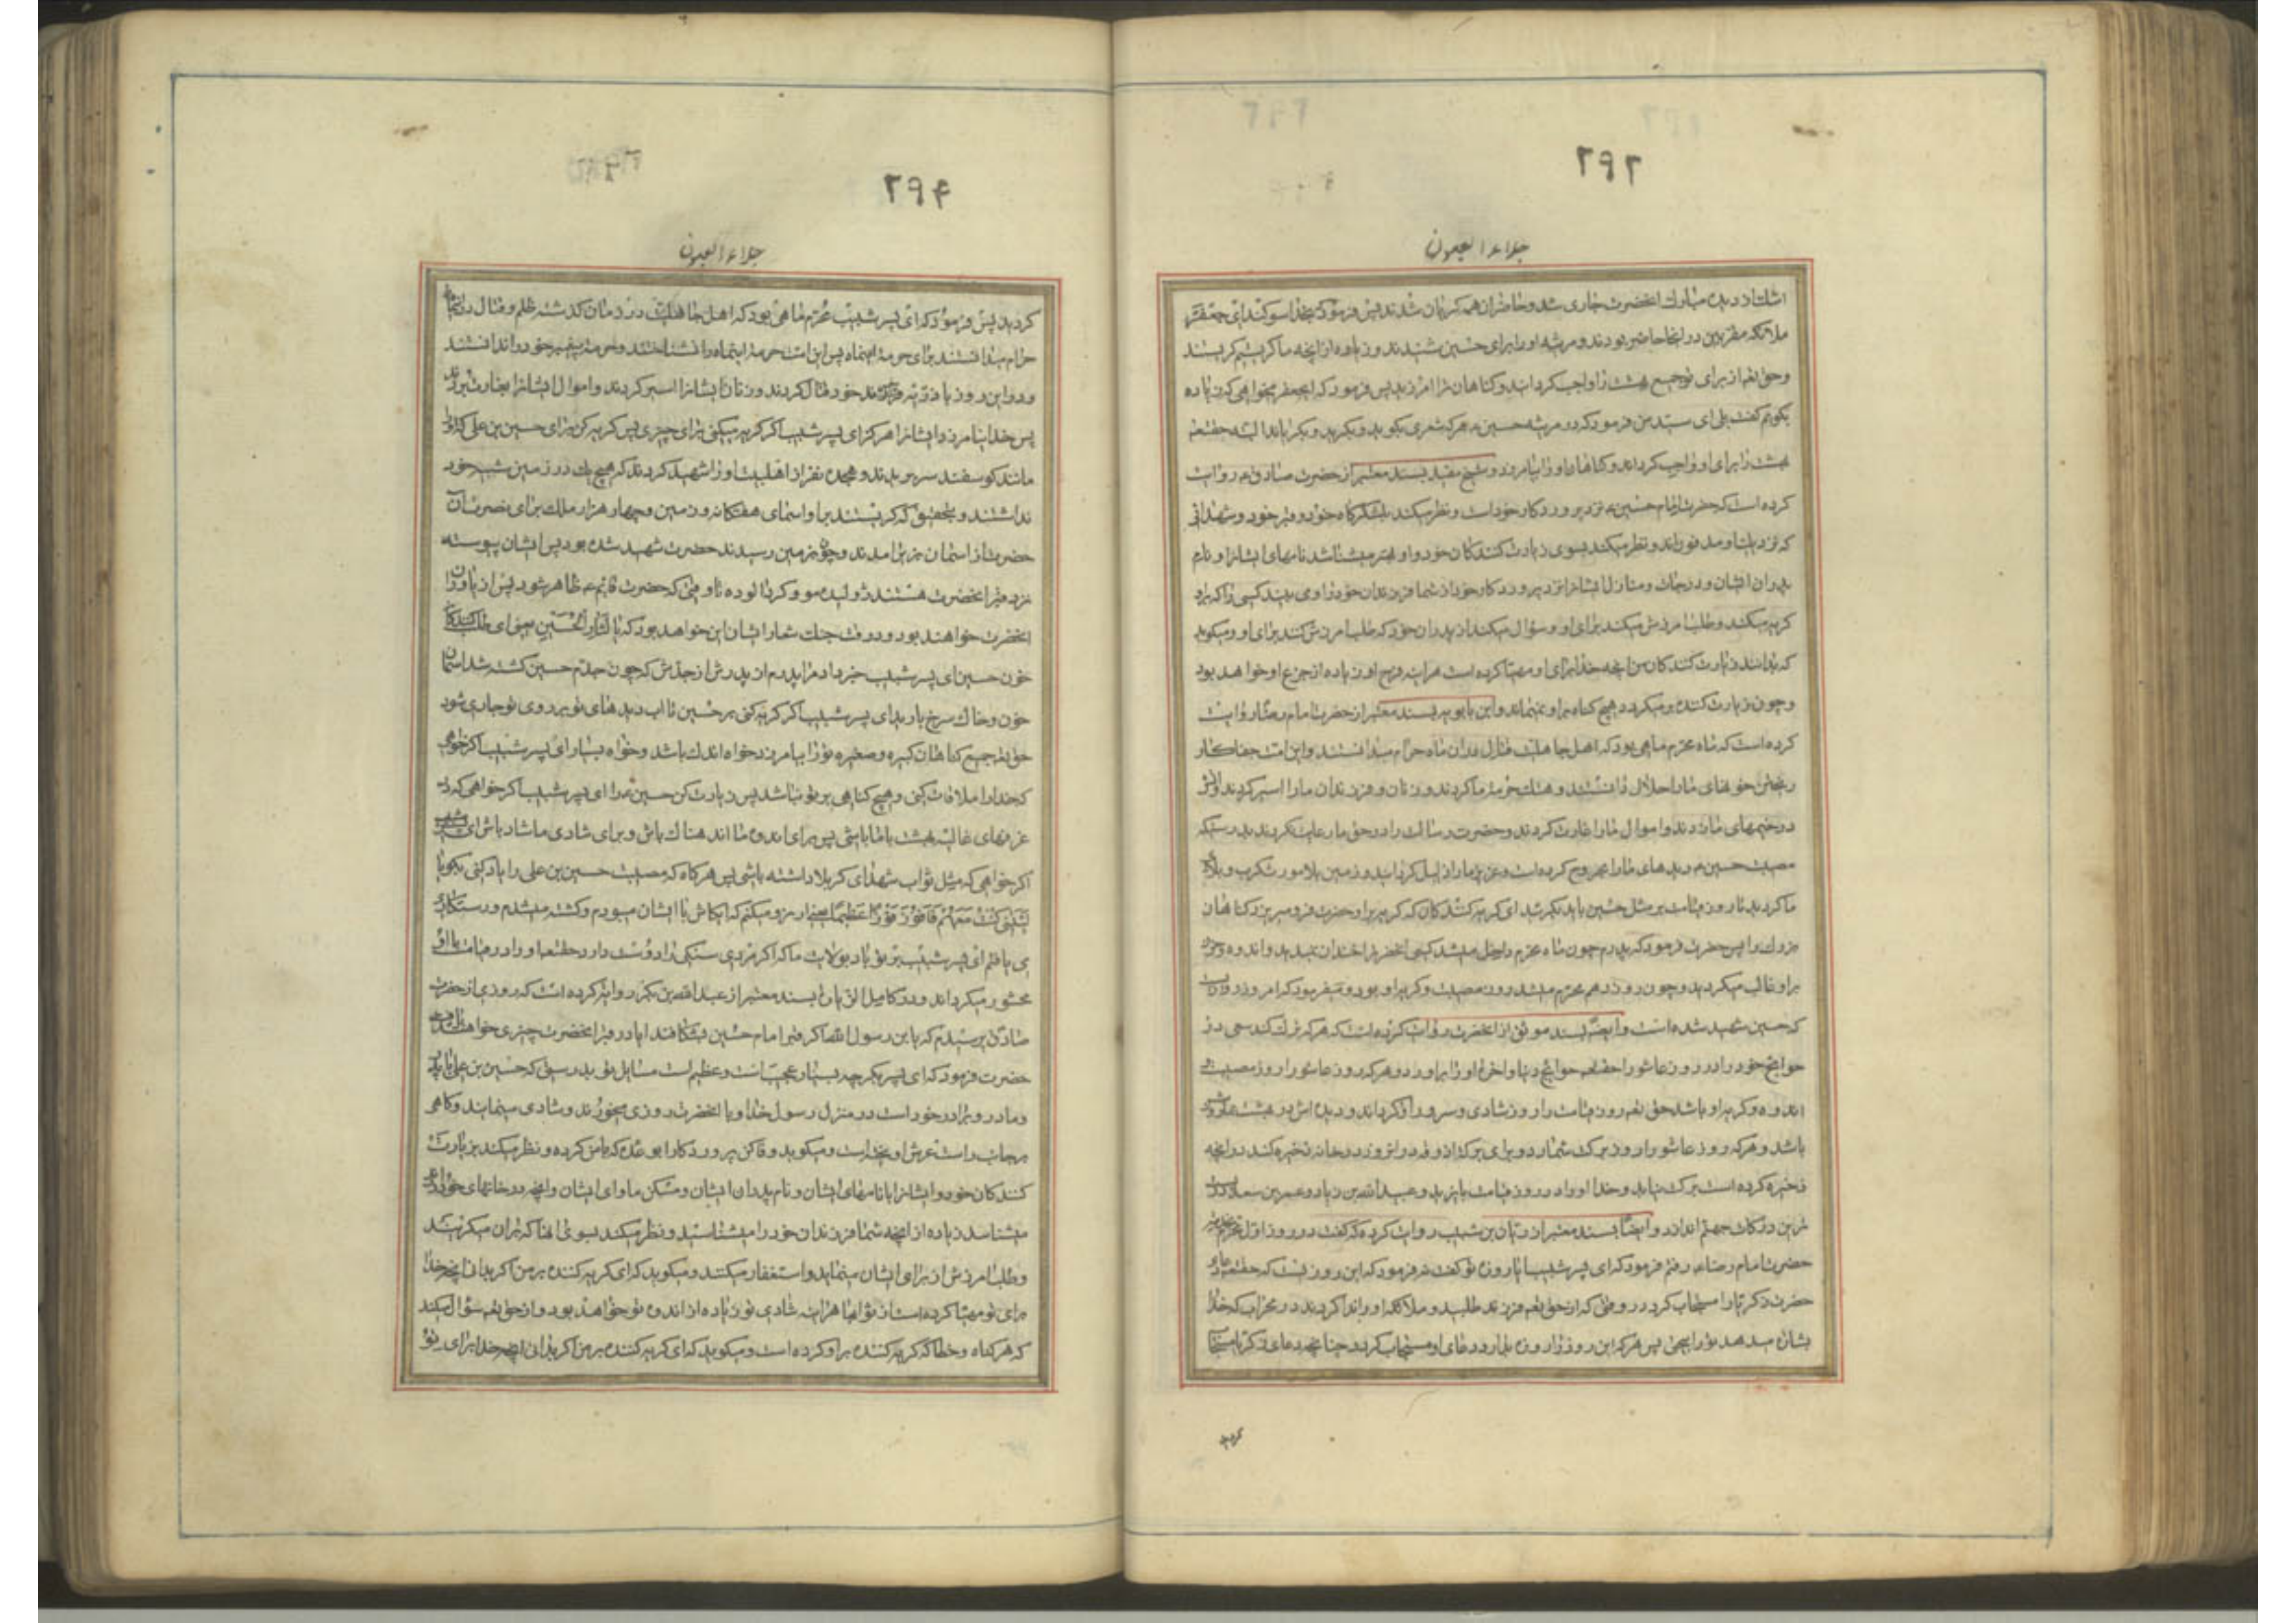 ۲۹۲
جلاء العیون
اشك از دیده مبارك انحضرت جاری شد و حاضران همه کریان شدند پس فرمود که بخدا سوکند ای جعفر که
ملائکه مقربین در اینجا حاضر بودند و مرثیه او را برای حسین شنیدند و زیاده از انچه ما کریستیم کریستند
وحق تعم از برای تو جمیع بهشت را واجب کردانید و کناهان ترا امرزید پس فرمود که ایجعفر میخواهی که زیاده
بکویم کفت بلی ای سید من فرمود که در مرثیه حسین ع هرکه شعری بکوید و بکرید و بکریاند البته حقتعم
بهشت را برای او واجب کرداند و کناهان او را بیامرزد و شیخ مفید بسند معتبر از حضرت صادق ع روایت
کرده است که حضرت امام حسین ع نزد پروردکار خود است و نظر میکند بلشکرکاه خود و قبر خود و شهدائی
که نزد یك او مدفونند و نظر میکند بسوی زیارت کنندکان خود و او بهتر میشناسد نامهای ایشانرا و نام
پدران ایشان و درجات و منازل ایشانرا نزد پروردکار خود از شما فرزندان خود را و می بیند کسی را که براو
کریه میکند و طلب امرزش میکند برای او و سؤال میکند از پدران خود که طلب امرزش کنند برای او و میکوید
که بدانند زیارت کنندکان من انچه خدا برای او مهیا کرده است هراینه فرح او زیاده از جزع او خواهد بود
و چون زیارت کننده بر میکردد هیچ کناه بر او نمیماند و ابن بابویه بسند معتبر از حضرت امام رضا روایت
کرده است که ماه محرم ماهی بود که اهل جاهلیت قتال در ان ماه حرام میدانستند و این امت جفاکار
ریختن خونهای ما را حلال دانستند و هتك حرمة ما کردند و زنان و فرزندان ما را اسیر کردند و اتش
در خیمهای ما زدند و اموال ما را غارت کردند و حضرت رسالت را در حق ما رعایت نکردند بدرستیکه
مصیبت حسین ع دیدهای ما را مجروح کرده است و عزیز ما را ذلیل کردانید و زمین بلا مورث کرب و بلای
ما کردید تا روز قیامت بر مثل حسین باید بکریند ای کریه کنندکان که کریه براو حضرت فرو میریزد کناهان
بزرك را پس حضرت فرمود که پدرم چون ماه محرم داخل میشد کسی انحضرترا خندان نمیدید و اندوه و حزن
براو غالب میکردید و چون روز دهم محرم میشد روز مصیبت و کریه او بود و میفرمود که امروز روزیست
که حسین شهید شده است و ایضا بسند موثق از انحضرت روایت کرده است که هر که ترك کند سعی در
حوایج خود را در روز عاشورا حقتعم حوایج دنیا و اخرة او را براورد و هرکه روز عاشورا روز مصیبت و
اندوه و کریه او باشد حق تعم روز قیامت را روز شادی و سرور او کرداند و دیده اش در بهشت بما روشن
باشد و هرکه روز عاشورا روز برکت شمارد و برای برکت اذوقه در انروز در خانه ذخیره کند در انچه
ذخیره کرده است برکت نیابد و خدا او را در روز قیامت با یزید و عبیدالله بن زیاد و عمر بن سعد در
ترین درکات جهنم اندازد و ایضا بسند معتبر از ریان بن شبیب روایت کرده که کفت در روز اول محرم بخدمت
حضرت امام رضا ع رفتم فرمود که ای پسر شبیب ایا روزه تو کفت نه فرمود که این روزیست که حقتعم دعای
حضرت زکریا را مستجاب کرد در وقتی که از حق تعم فرزند طلبید و ملائکه او را ندا کردند در محراب که خدا
بشارت میدهد تو را بیحیی پس هرکه این روز را روزه بدارد دعای او مستجاب کردد چنانچه دعای زکریا مستجاب
کردید
۲۹۴
جلاء العیون
کردید پس فرمود که ای پسر شبیب محرم ماهی بود که اهل جاهلیت در زمان کذشته ظلم و قتال در اینماه
حرام میدانستند برای حرمة اینماه پس این امت حرمة اینماه را نشناختند و حرمة پیغمبر خود را ندانستند
و در این روز با ذریه فرزند خود قتال کردند و زنان ایشانرا اسیر کردند و اموال ایشانرا بغارت بردند
پس خدا نیامرزد ایشانرا هرکز ای پسر شبیب اکر کریه میکنی برای چیزی پس کریه کن برای حسین بن علی که او را
مانند کوسفند سر بریدند و هیجده نفر از اهلبیت او را شهید کردند که هیچ یك در زمین شبیه خود
نداشتند و بتحقیق که کریستند براو اسمای هفتکانه و زمین و چهار هزار ملك برای نصرت ان
حضرت از اسمان بزیر امدند و چون بزمین رسیدند حضرت شهید شده بود پس ایشان پیوسته
نزد قبر انحضرت هستند ژولیده مو و کرد الوده تا وقتی که حضرت قائم ع ظاهر شود پس از یاوران
انحضرت خواهند بود و در وقت جنك شعار ایشان این خواهد بود که یا لثارات الحسین یعنی ای طلب کنندکان
خون حسین ای پسر شبیب خبر داد مرا پدرم از پدرش از جدش که چون جدم حسین کشته شد اسمان
خون و خاك سرخ بارید ای پسر شبیب اکر کریه کنی بر حسین تا اب دیدهای تو بر روی تو جاری شود
حق تعم جمیع کناهان کبیره و صغیره تو را بیامرزد خواه اندك باشد و خواه بسیار ای پسر شبیب اکر خواهی
که خدا را ملاقات کنی و هیچ کناهی بر تو نباشد پس زیارت کن حسین ع را ای پسر شبیب اکر خواهی که در
غرفهای عالیه بهشت با ما باشی پس برای اندوه ما اندهناك باش و برای شادی ما شاد باش ای پسر شبیب
اکر خواهی که مثل ثواب شهدای کربلا داشته باشی پس هرکاه که مصیبت حسین بن علی را یاد کنی بکو یا
لیتنی کنت معهم فافوز فوزا عظیما یعنی ارزو میکنم که ایکاش با ایشان میبودم و کشته میشدم و رستکاری
می یافتم ای پسر شبیب بر تو باد بولایت ما که اکر مردی سنکی را دوست دارد حقتعم او را در قیامت با او
محشور میکرداند و در کامل الزیاره بسند معتبر از عبدالله بن بکر روایت کرده است که روزی از حضرت
صادق پرسیدم که یا بن رسول الله اکر قبر امام حسین بشکافند ایا در قبر انحضرت چیزی خواهند یافت
حضرت فرمود که ای پسر بکر چه بسیار عجیب است و عظیم است مسایل تو بدرستی که حسین بن علی با پدر
و مادر و برادر خود است در منزل رسول خدا و با انحضرت روزی میخورند و شادی مینمایند و کاهی
بر جانب راست عرش اویخته است و میکوید وفا کن پروردکارا بوعده که با من کرده و نظر میکند بزیارت
کنندکان خود و ایشانرا با نامهای ایشان و نام پدران ایشان و مسکن و ماوای ایشان و انچه در خانهای خود دارند
میشناسد زیاده از انچه شما فرزندان خود را میشناسید و نظر میکند بسوی انها که بر ان میکریند
و طلب امرزش از برای ایشان مینماید و استغفار میکند و میکوید که ای کریه کننده بر من اکر بدانی انچه خدا
برای تو مهیا کرده است از ثوابها هراینه شادی تو زیاده از اندوه تو خواهد بود و از حق تعم سؤال میکند
که هر کناه و خطا که کریه کننده براو کرده است و میکوید که ای کریه کننده بر من اکر بدانی انچه خدا برای تو